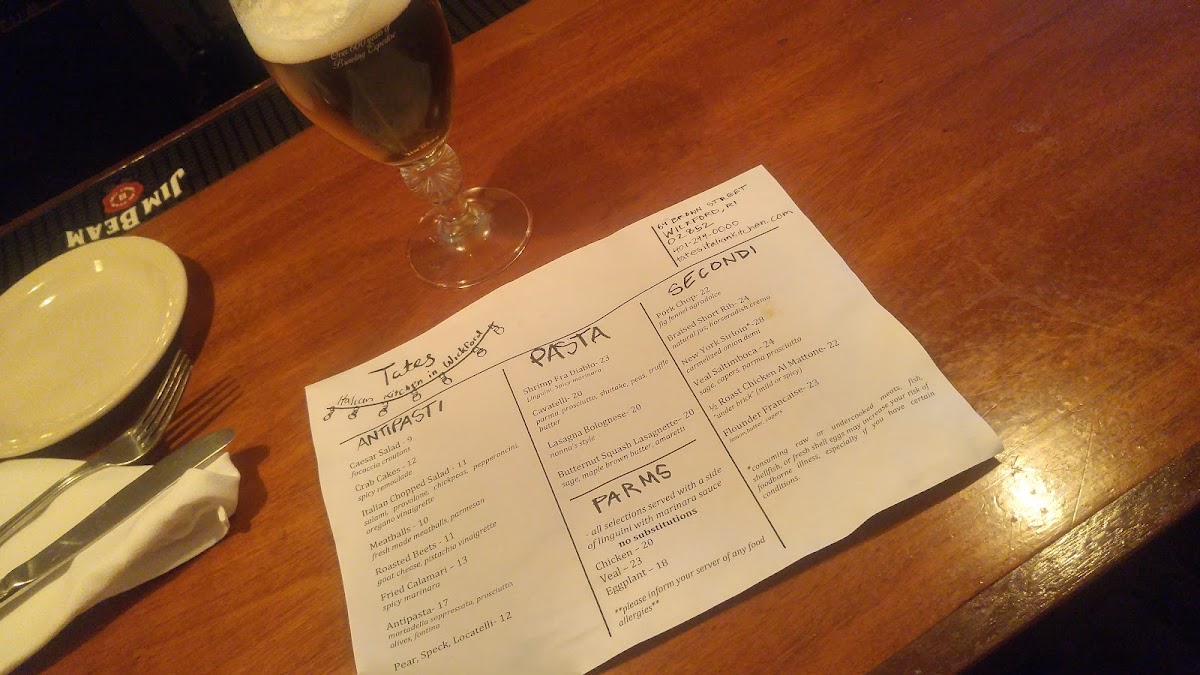 Over 600 years of
Brewing Expertise
JIM BEAM
64 BROWN STREET
WICKFORD, RI
02852
401-299-0000
tatesitaliankitchen.com
Tates
Italian Kitchen in Wickford
ANTIPASTI
Caesar Salad - 9
focaccia croutons
Crab Cakes - 12
spicy remoulade
Italian Chopped Salad - 11
salami, provolone, chickpeas, pepperoncini,
oregano vinaigrette
Meatballs - 10
fresh made meatballs, parmesan
Roasted Beets - 11
goat cheese, pistachio vinaigrette
Fried Calamari - 13
spicy marinara
Antipasta- 17
mortadella soppressata, prosciutto
olives, fontina
Pear, Speck, Locatelli- 12
PASTA
Shrimp Fra Diablo- 23
Linguini, Spicy marinara
Cavatelli- 20
parma prosciutto, shitake, peas, truffle
butter
Lasagna Bolognese- 20
nonna's style
Butternut Squash Lasagnette- 20
sage, maple brown butter, amaretti
PARMS
- all selections served with a side
of linguini with marinara sauce
no substitutions
Chicken – 20
Veal – 23
Eggplant – 18
**please inform your server of any food
allergies**
SECONDI
Pork Chop- 22
fig fennel agrodolce
Braised Short Rib- 24
natural jus, horseradish crema
New York Sirloin*-28
carmelized onion demi
Veal Saltimboca – 24
sage, capers, parma prosciutto
½ Roast Chicken Al Mattone- 22
"under brick" (mild or spicy)
Flounder Francaise- 23
lemon, butter, capers
*consuming raw or undercooked meats, fish,
shellfish, or fresh shell eggs may increase your risk of
foodborne illness, especially if you have certain
conditions.